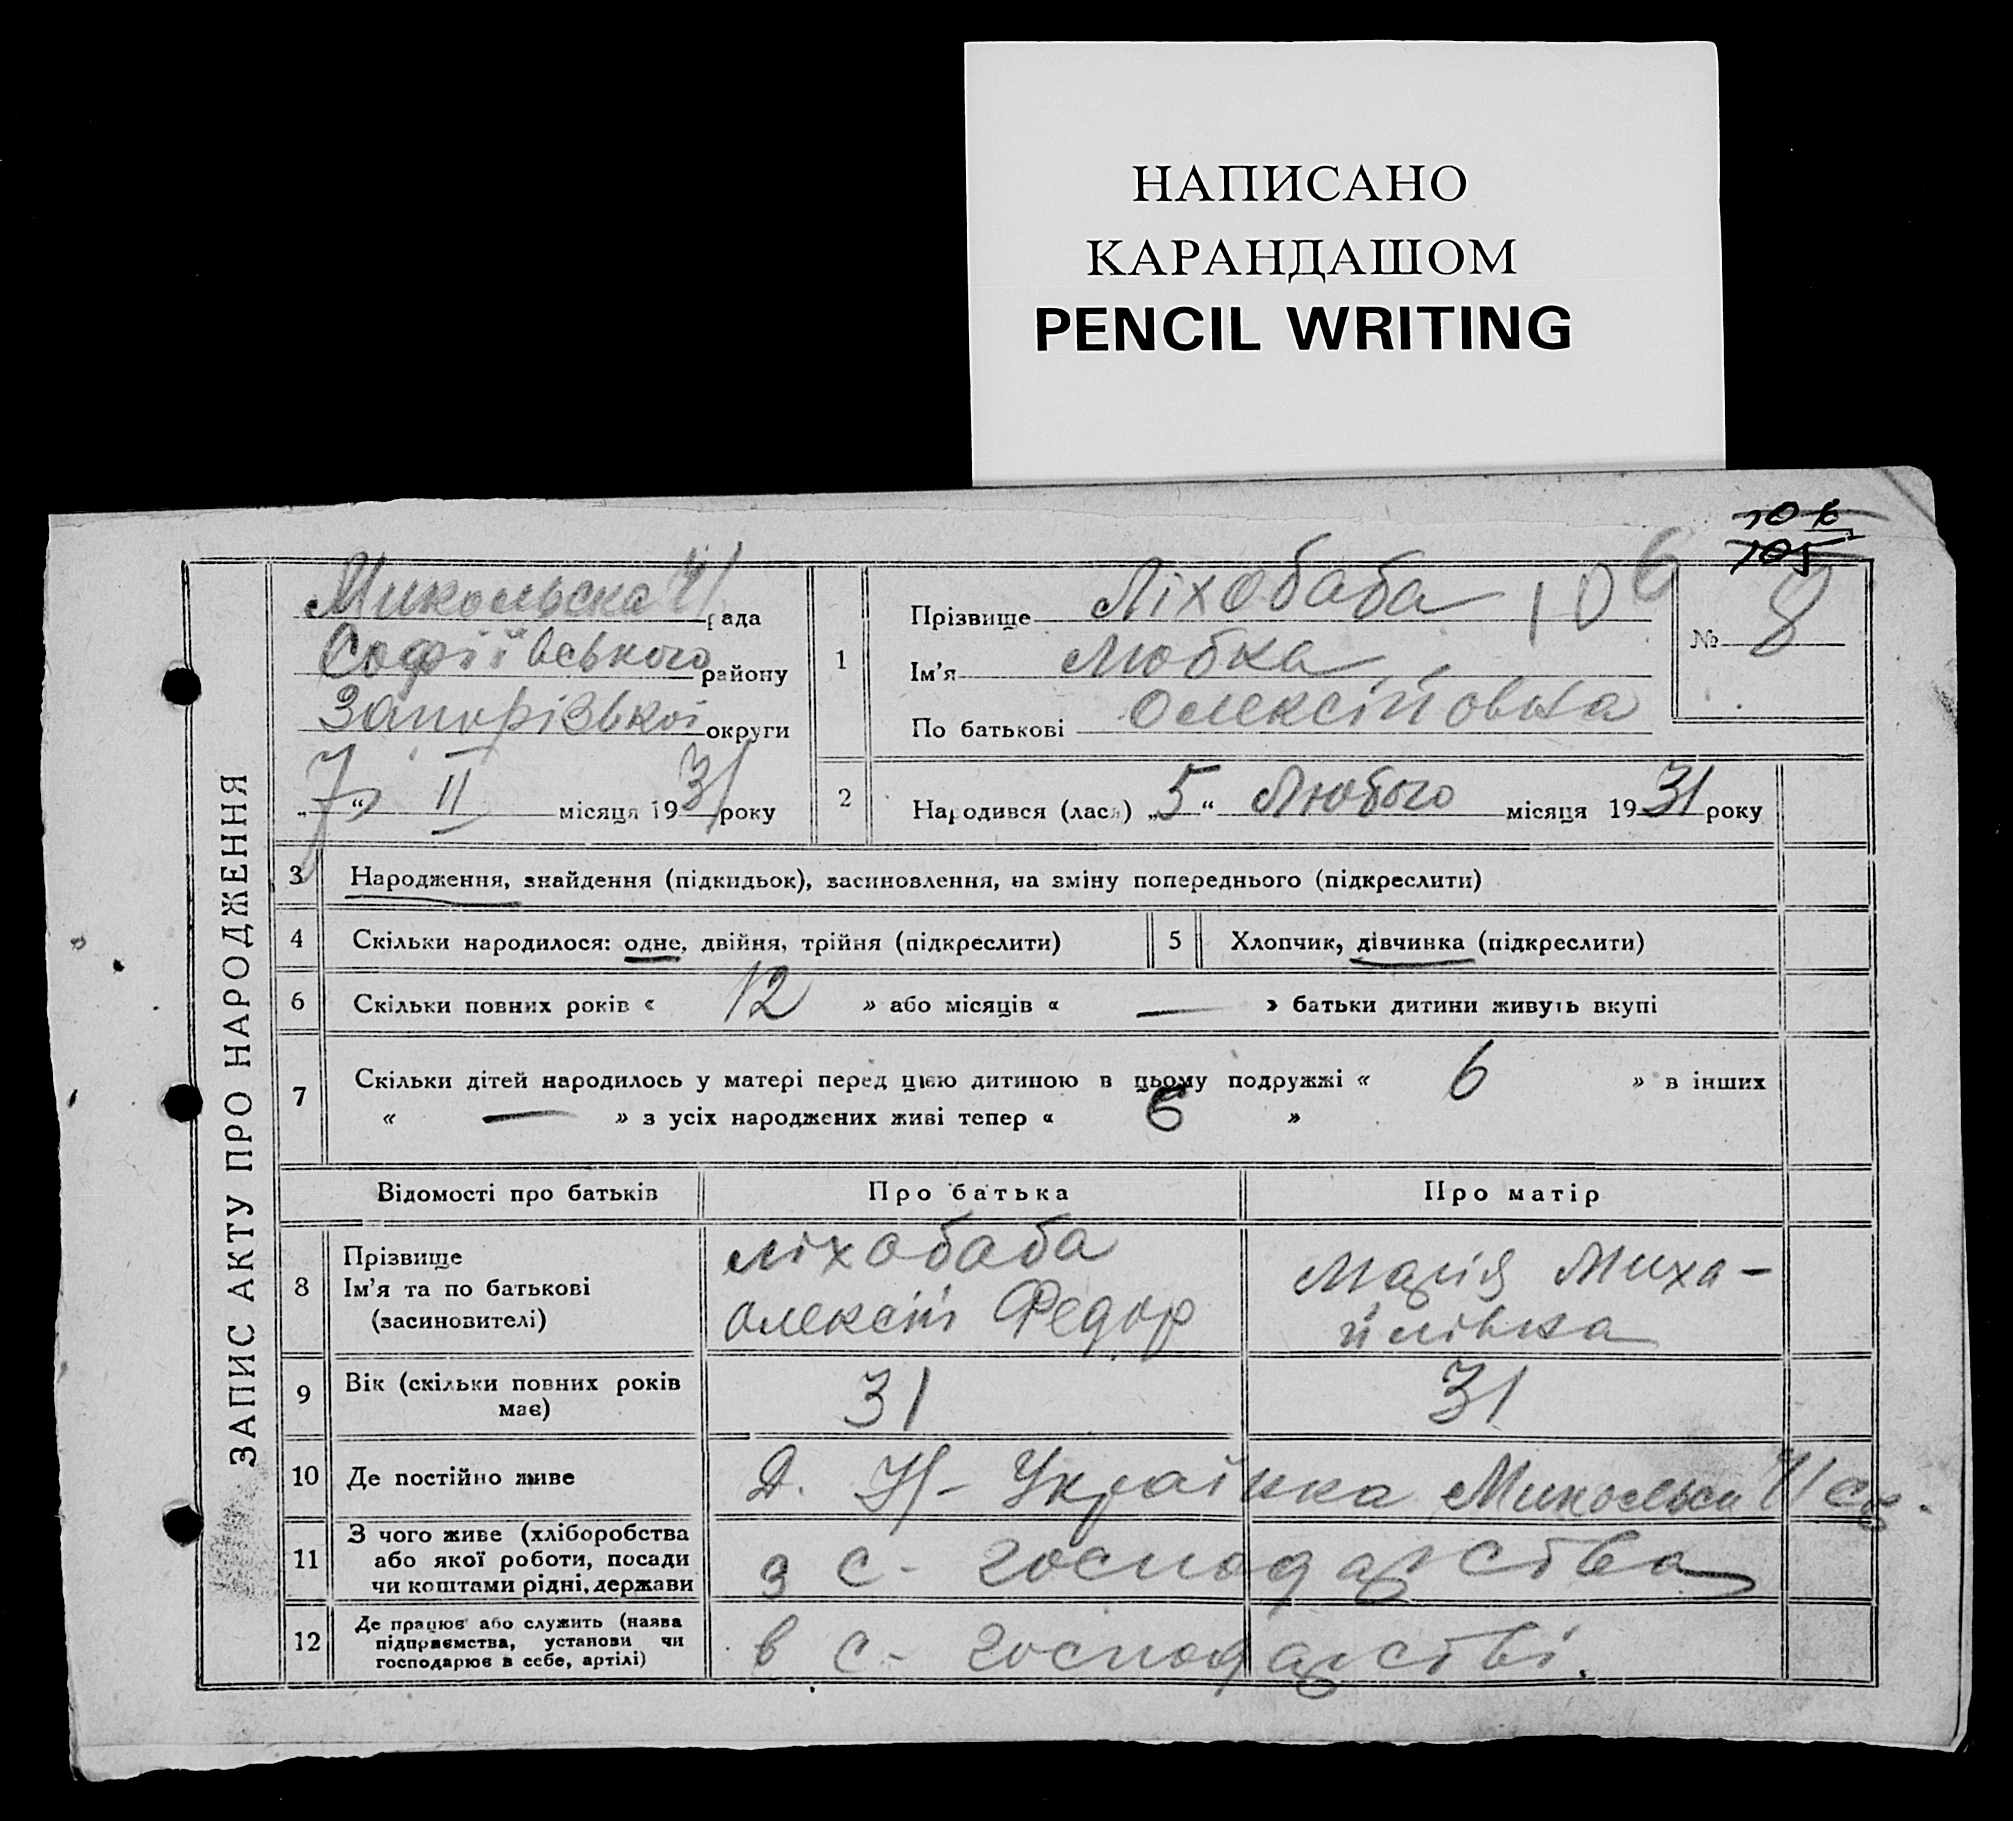 НАПИСАНО
КАРАНДАШОМ
PENCIL WRITING
106
105
ЗАПИС АКТУ ПРО НАРОДЖЕННЯ
Микольска ІІ рада
Софіївського району
Запорізької округи
„7“ II місяця 1931 року
1 Прізвище Ліхобаба 106
Ім'я Любка
По батькові Олексійовна
№ 8
2 Народився (лась) „5“ Лютого місяця 1931 року
3 Народження, знайдення (підкидьок), засиновлення, на зміну попереднього (підкреслити)
4 Скільки народилося: одне, двійня, трійня (підкреслити) 5 Хлопчик, дівчинка (підкреслити)
6 Скільки повних років « 12 » або місяців « — » батьки дитини живуть вкупі
7 Скільки дітей народилось у матері перед цією дитиною в цьому подружжі « 6 » в інших
« — » з усіх народжених живі тепер « 6 »
Відомості про батьків Про батька Про матір
8 Прізвище
Ім'я та по батькові
(засиновителі)
Ліхобаба
Олексій Федор
Марія Миха-
йлівна
9 Вік (скільки повних років
має)
31 31
10 Де постійно живе Д. Н-Українка Микольск
11 З чого живе (хліборобства
або якої роботи, посади
чи коштами рідні, держави
з с- господарства
12 Де працює або служить (назва
підприємства, установи чи
господарює в себе, артілі)
в с- господарстві.